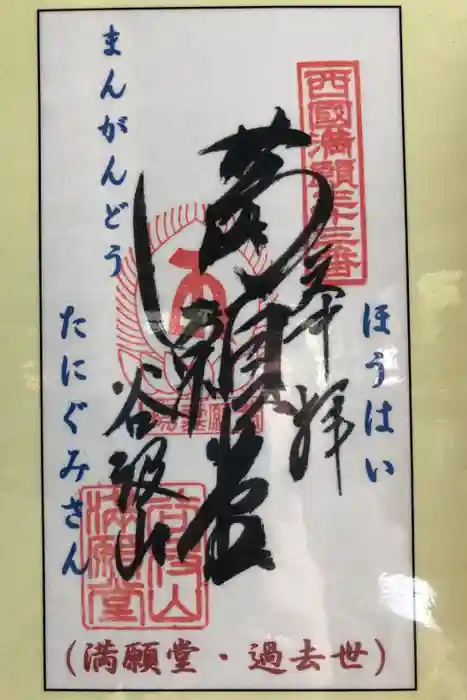 西國満願三十三番
ほうはい
奉拝
満願堂
谷汲山
まんがんどう
たにぐみさん
谷汲山
満願堂
(満願堂・過去世)